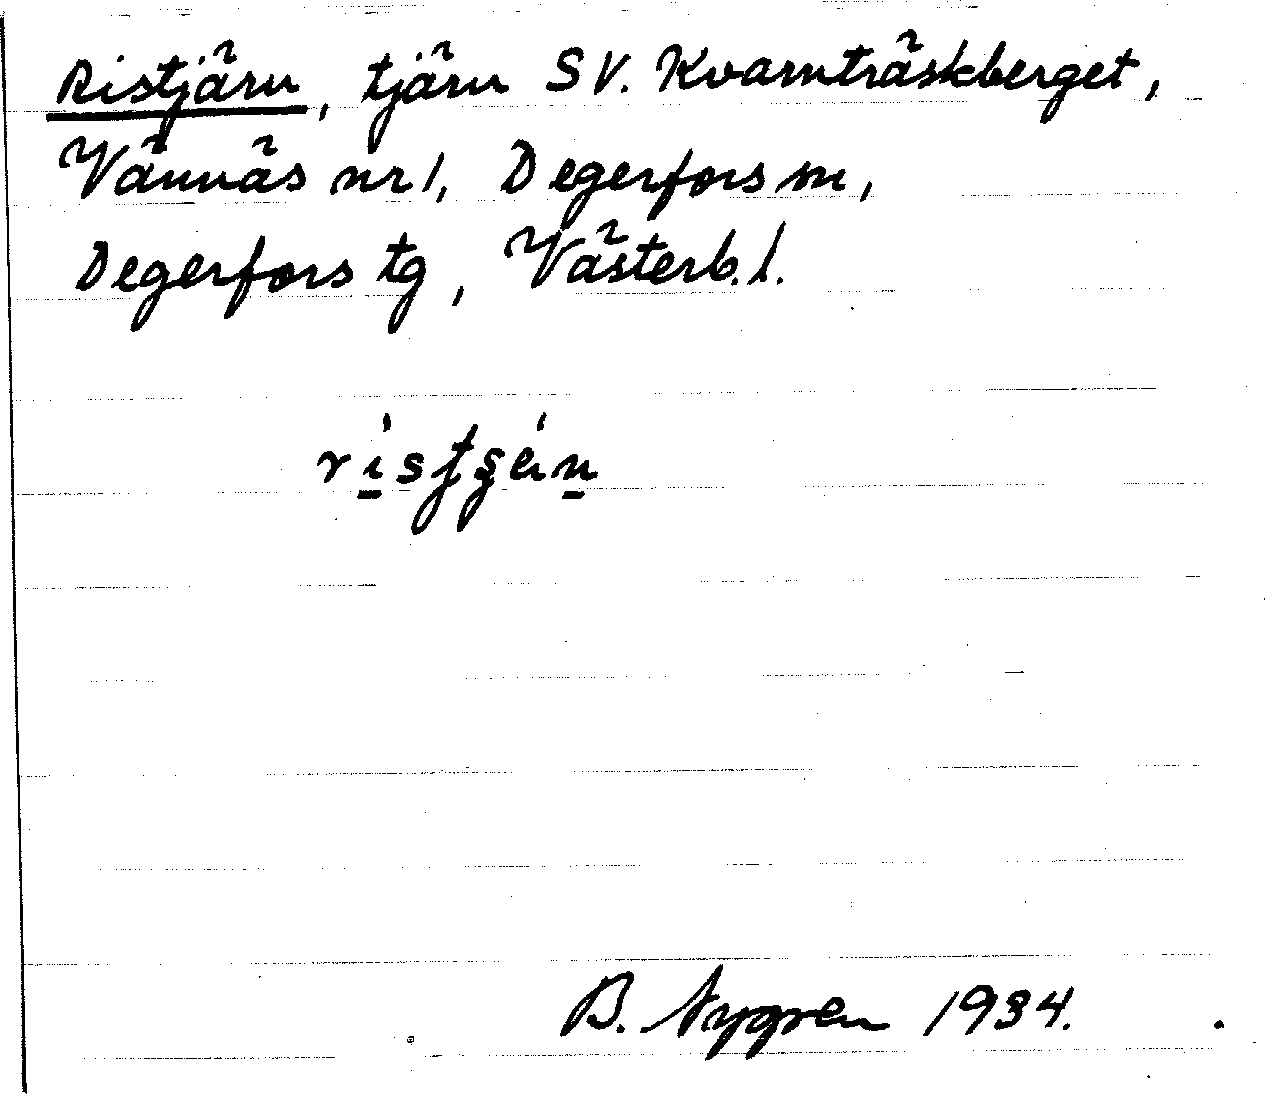 Ristjärn, tjärn SV. Kvarnträskberget,
Vännäs nr 1, Degerfors sn,
Degerfors tg, Västerb. l.
B. Nygren 1934.